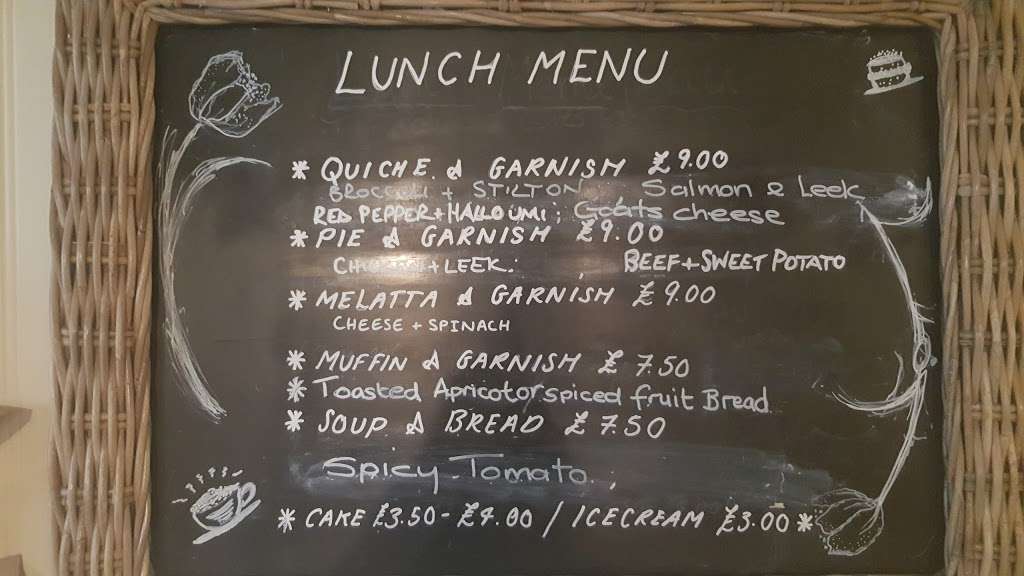 LUNCH MENU
* QUICHE & GARNISH £9.00
BROCCOLI + STILTON Salmon & Leek
RED PEPPER + HALLOUMI; Goats cheese
* PIE & GARNISH £9.00
+ LEEK. BEEF + SWEET POTATO
* MELATTA & GARNISH £9.00
CHEESE + SPINACH
* MUFFIN & GARNISH £7.50
* Toasted Apricot or spiced fruit Bread
* SOUP & BREAD £7.50
Spicy Tomato
* CAKE £3.50 - £4.00 / ICECREAM £3.00 *